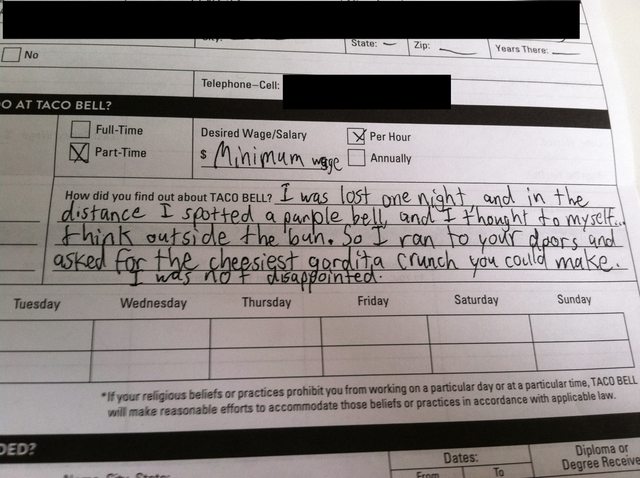 State: Zip: Years There:
No
Telephone–Cell:
O AT TACO BELL?
Full-Time Desired Wage/Salary Per Hour
Part-Time $ Minimum wage Annually
How did you find out about TACO BELL? I was lost one night, and in the
distance I spotted a purple bell, and I thought to myself...
think outside the bun. So I ran to your doors and
asked for the cheesiest gordita crunch you could make.
I was not disappointed.
Tuesday Wednesday Thursday Friday Saturday Sunday
*If your religious beliefs or practices prohibit you from working on a particular day or at a particular time, TACO BELL
will make reasonable efforts to accommodate those beliefs or practices in accordance with applicable law.
DED?
Dates: Diploma or
From To Degree Receive